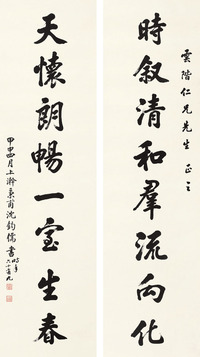 雲階仁兄先生 正之
時叙清和羣流向化
天懷朗暢一室生春
甲申四月上澣秉甫沈鈞儒書